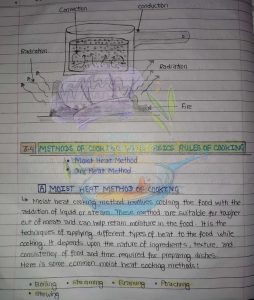 Convection
conduction
Radiation
Radiation
Fire
METHODS OF COOKING WITH BASIC RULES OF COOKING
• Moist Heat Method
• Dry Heat Method
A MOIST HEAT METHOD OF COOKING
Moist heat cooking method involves cooking the food with the
addition of liquid or steam. These method are suitable for tougher
cut of meats and can help retain moisture in the food. It is the
techniques of applying different types of heat to the food while
cooking. It depends upon the nature of ingredients, texture, and
consistency of food and time required for preparing dishes.
Here is some common moist heat cooking methods:
• Boiling • Steaming • Braising • Poaching
• Stewing